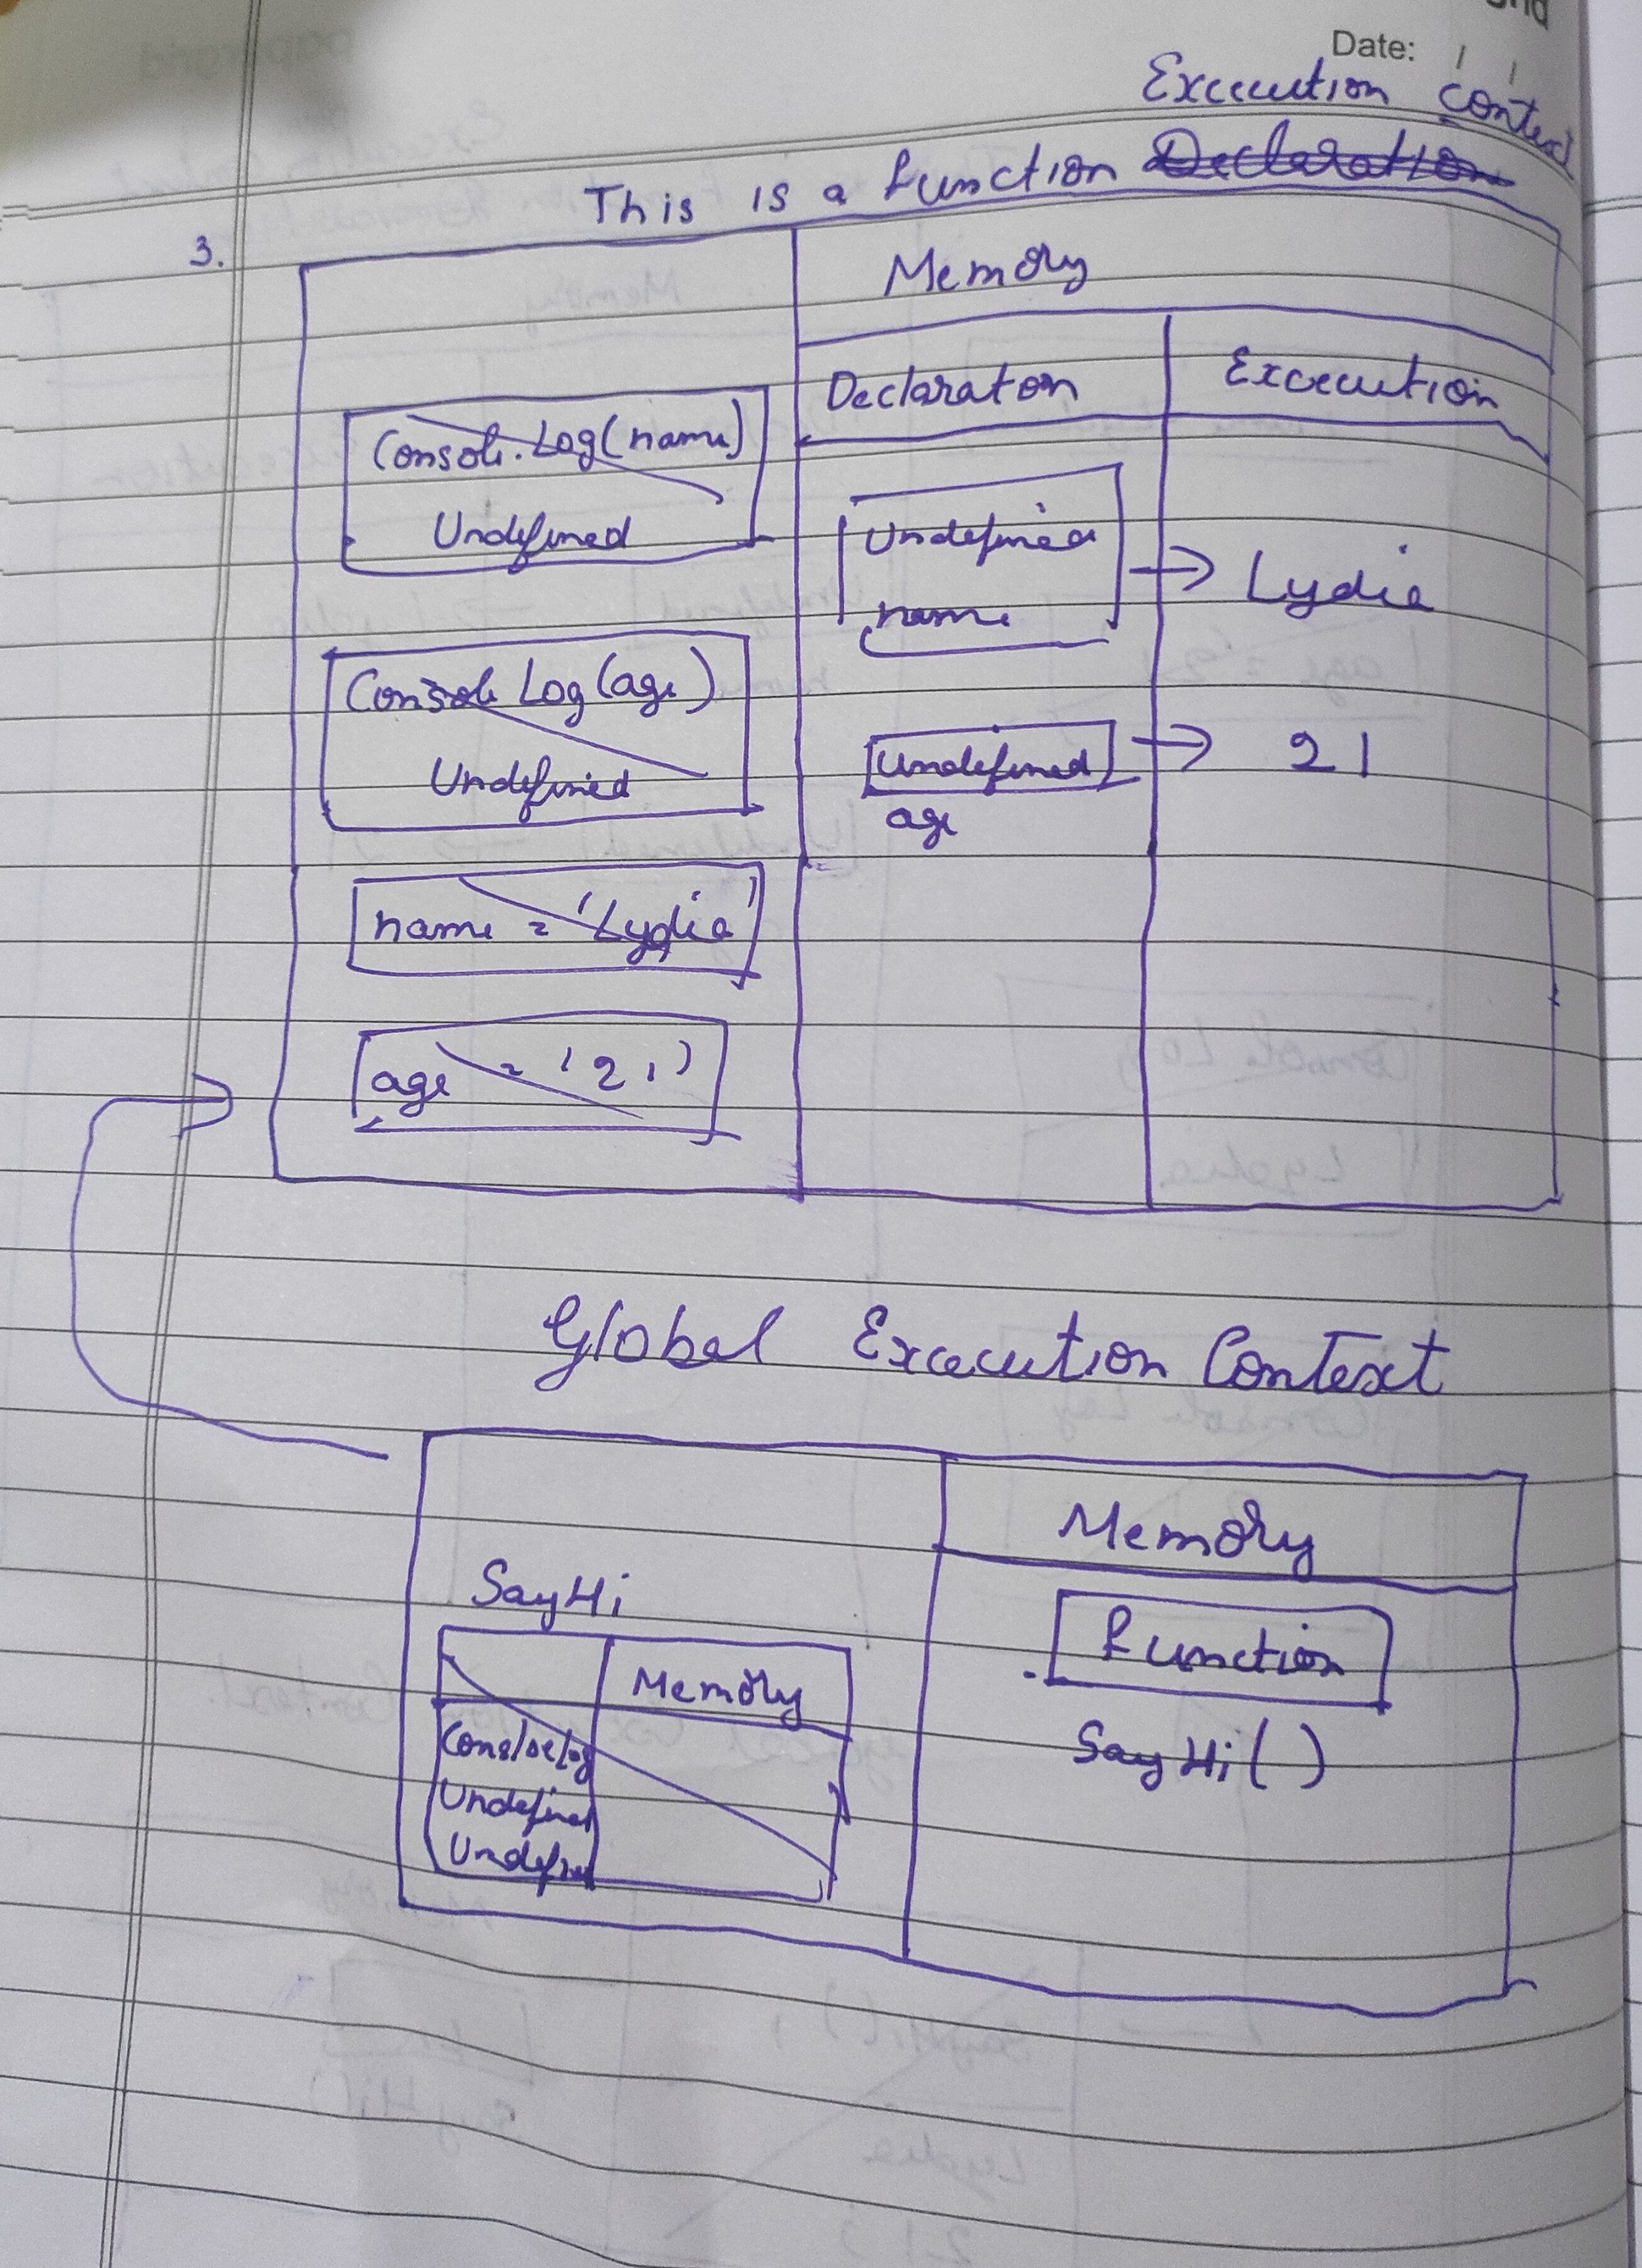 Date: / /
Excecution Context
This is a function Declaration
3.
Memory
Declaraton Excecution
Console.Log(name)
Undefined
Undefined
name
→ Lydia
Console Log(age)
Undefined
Undefined → 21
age
name = 'Lydia'
age = '21'
Global Excecution Context
Memory
SayHi
Function
Memory
SayHi()
Console log
Undefined
Undefined